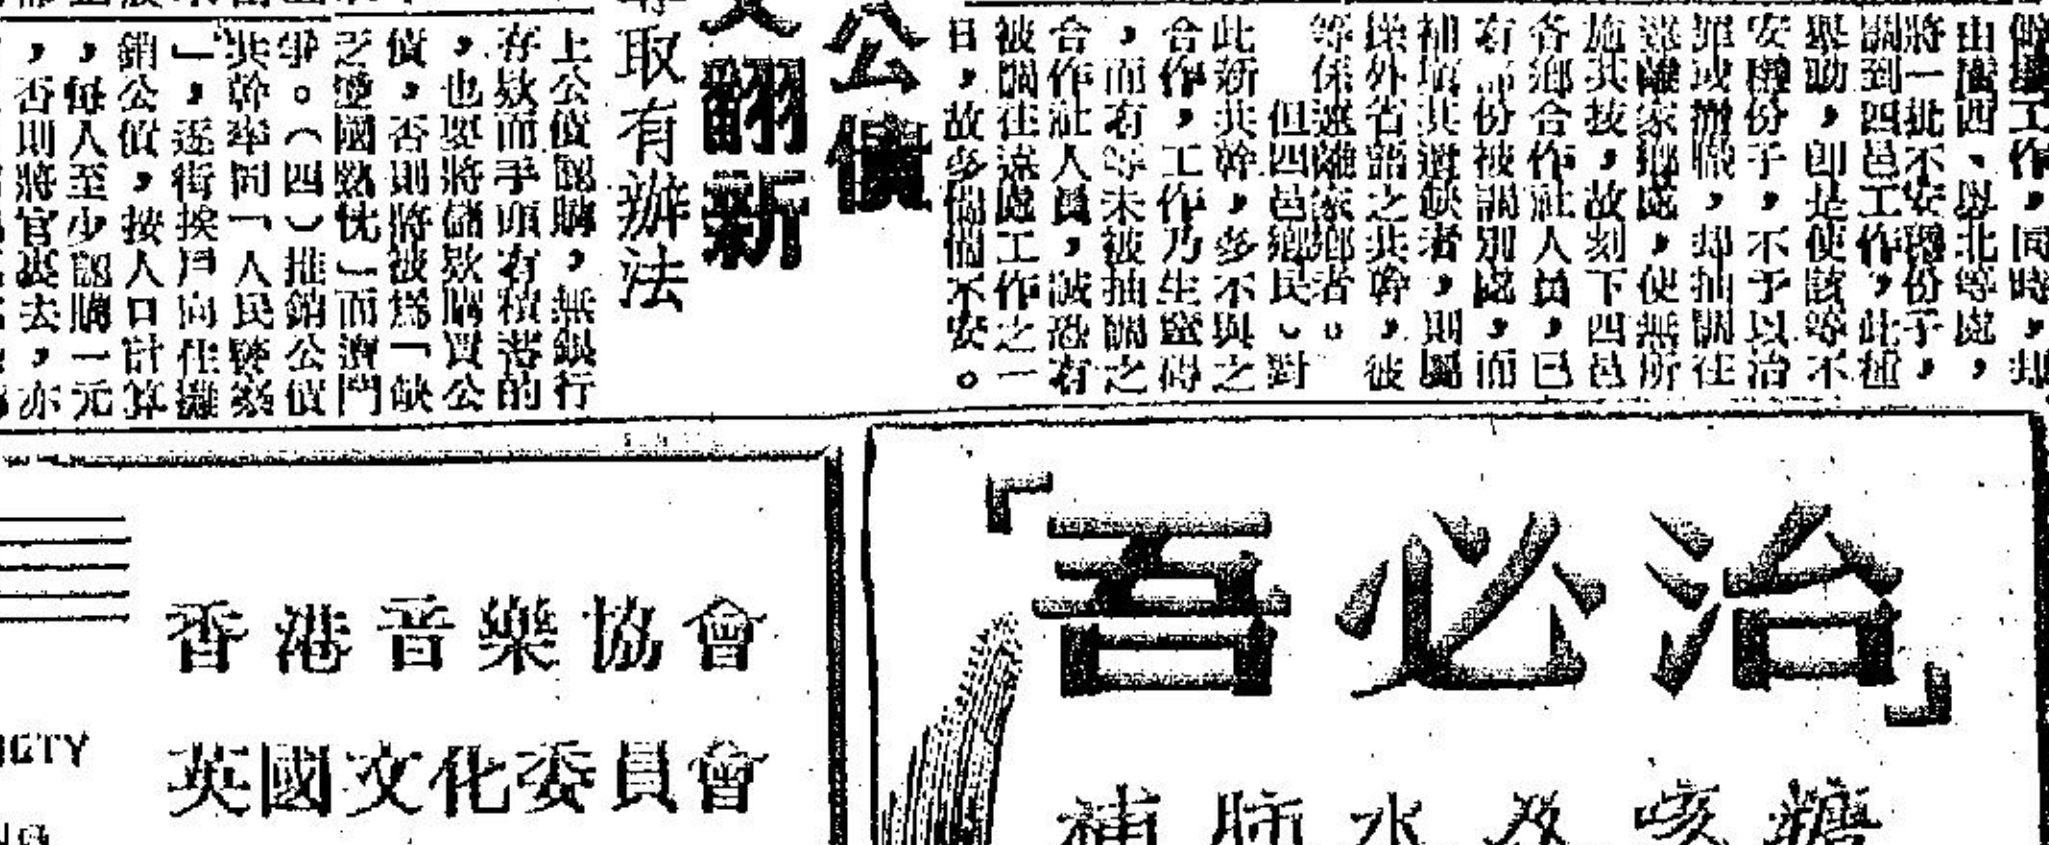 工作，同時，却
由廣西、以北等處，
將一批不安穩份子，
調到四邑工作，此種
舉動，即是使該等不
安穩份子，不予以治
罪或撤職，却抽調往
遠離家鄉處，使無所
施其技，故刻下四邑
各鄉合作社人員，已
有部份被調別處，而
補塡其遺缺者，則屬
操外省語之共幹，彼
等係遠離家鄉者。
但四邑鄉民。對
此新共幹，多不與之
合作，工作乃生窒碍
，而有等未被抽調之
合作社人員，誠恐有
被調往遠處工作之一
日，故多惴惴不安。
公債
翻新
取有辦法
上公債認購，無銀行
存欵而手頭有積蓄的
，也要將儲欵購買公
債，否則將被爲「缺
乏愛國熱忱」而瀆鬥
爭。（四）推銷公債
共幹率同「人民警察
」，逐街挨戶向住攤
銷公債，按人口計算
，每人至少認購一元
，否則將官裏去，亦
香港音樂協會
英國文化委員會
「吾必治」
補肺水及咳糖